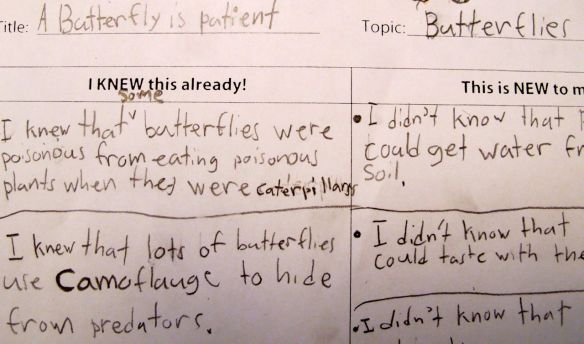 Title: A Butterfly is patient
Topic: Butterflies
I KNEW this already!
This is NEW to m
some
I knew that ˅ butterflies were
poisonous from eating poisonous
plants when they were caterpillars
I knew that lots of butterflies
use Camoflauge to hide
from predators.
• I didn't know that
could get water fr
Soil.
• I didn't know that
could taste with the
• I didn't know that